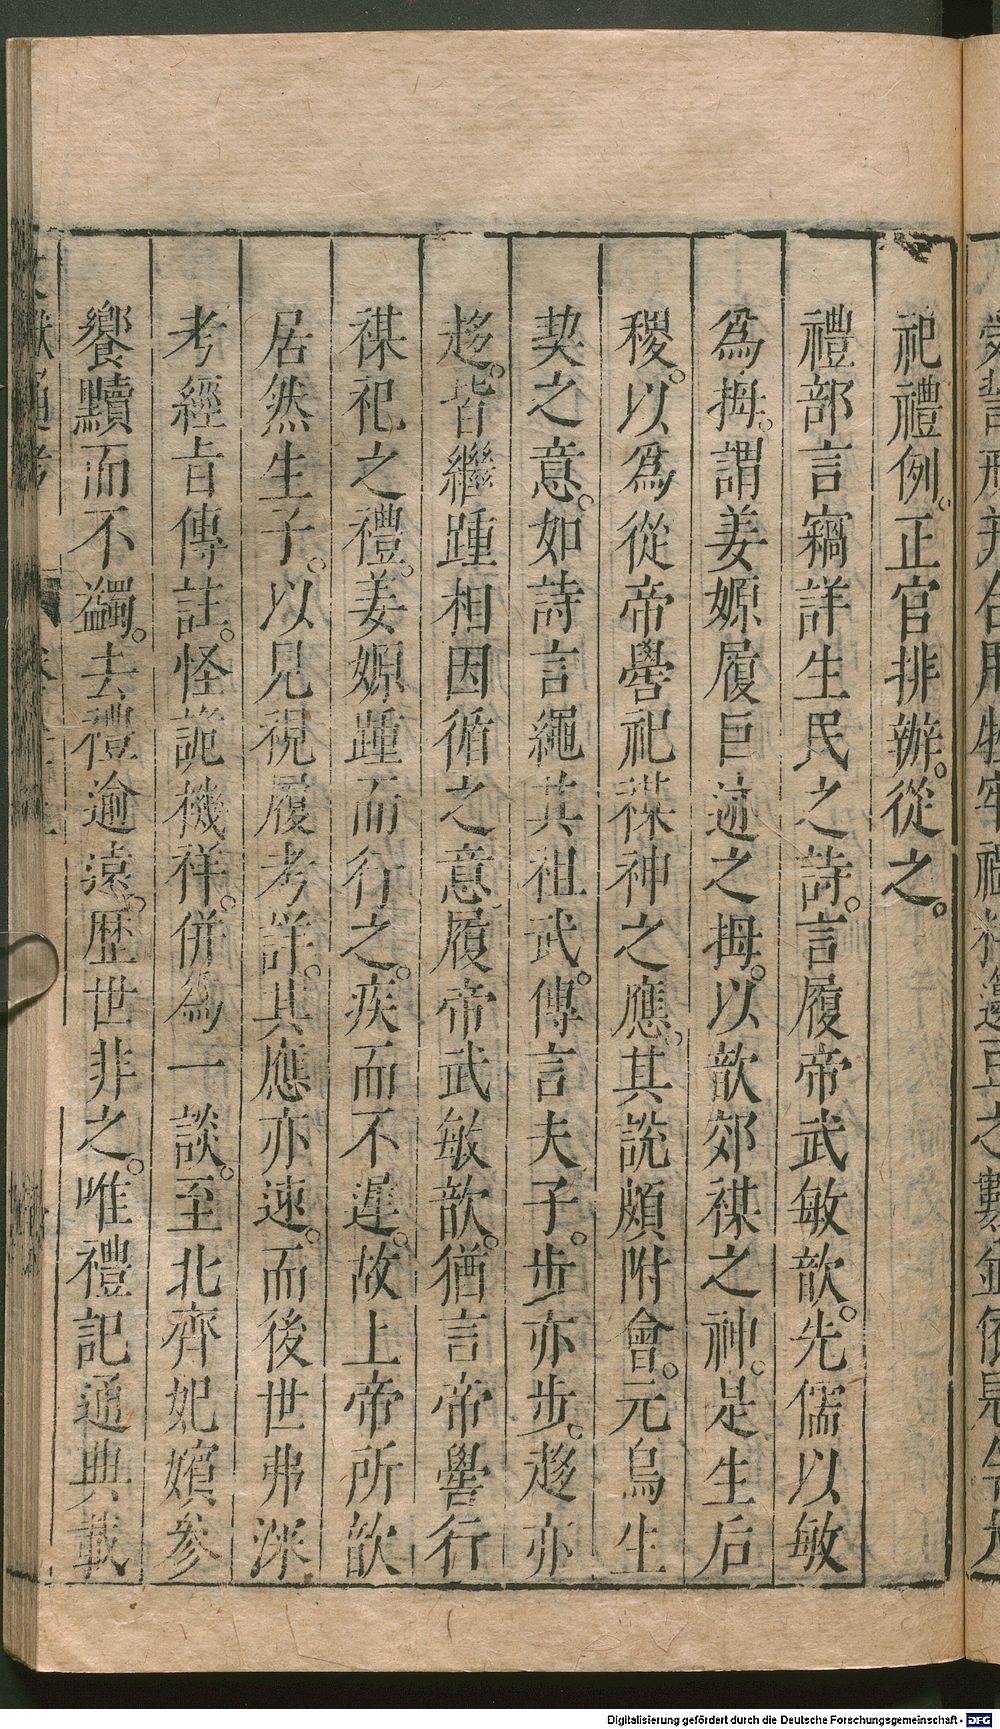 祀禮例。正官排辦。從之。
禮部言竊詳生民之詩。言履帝武敏歆。先儒以敏
爲拇。謂姜嫄履巨迹之拇。以歆郊禖之神。是生后
稷。以爲從帝嚳祀禖神之應。其說頗附會。元鳥生
契之意。如詩言繩其祖武。傳言夫子。步亦步。趍亦
趍。皆繼踵相因循之意。履帝武敏歆。猶言帝嚳行
禖祀之禮。姜嫄踵而行之。疾而不遲。故上帝所歆
居然生子。以見視履考詳。其應亦速。而後世弗深
考經旨傳註。怪詭機祥。併爲一談。至北齊妃嬪參
饗黷而不蠲。去禮逾遠。歷世非之。唯禮記通典載
Digitalisierung gefördert durch die Deutsche Forschungsgemeinschaft - DFG